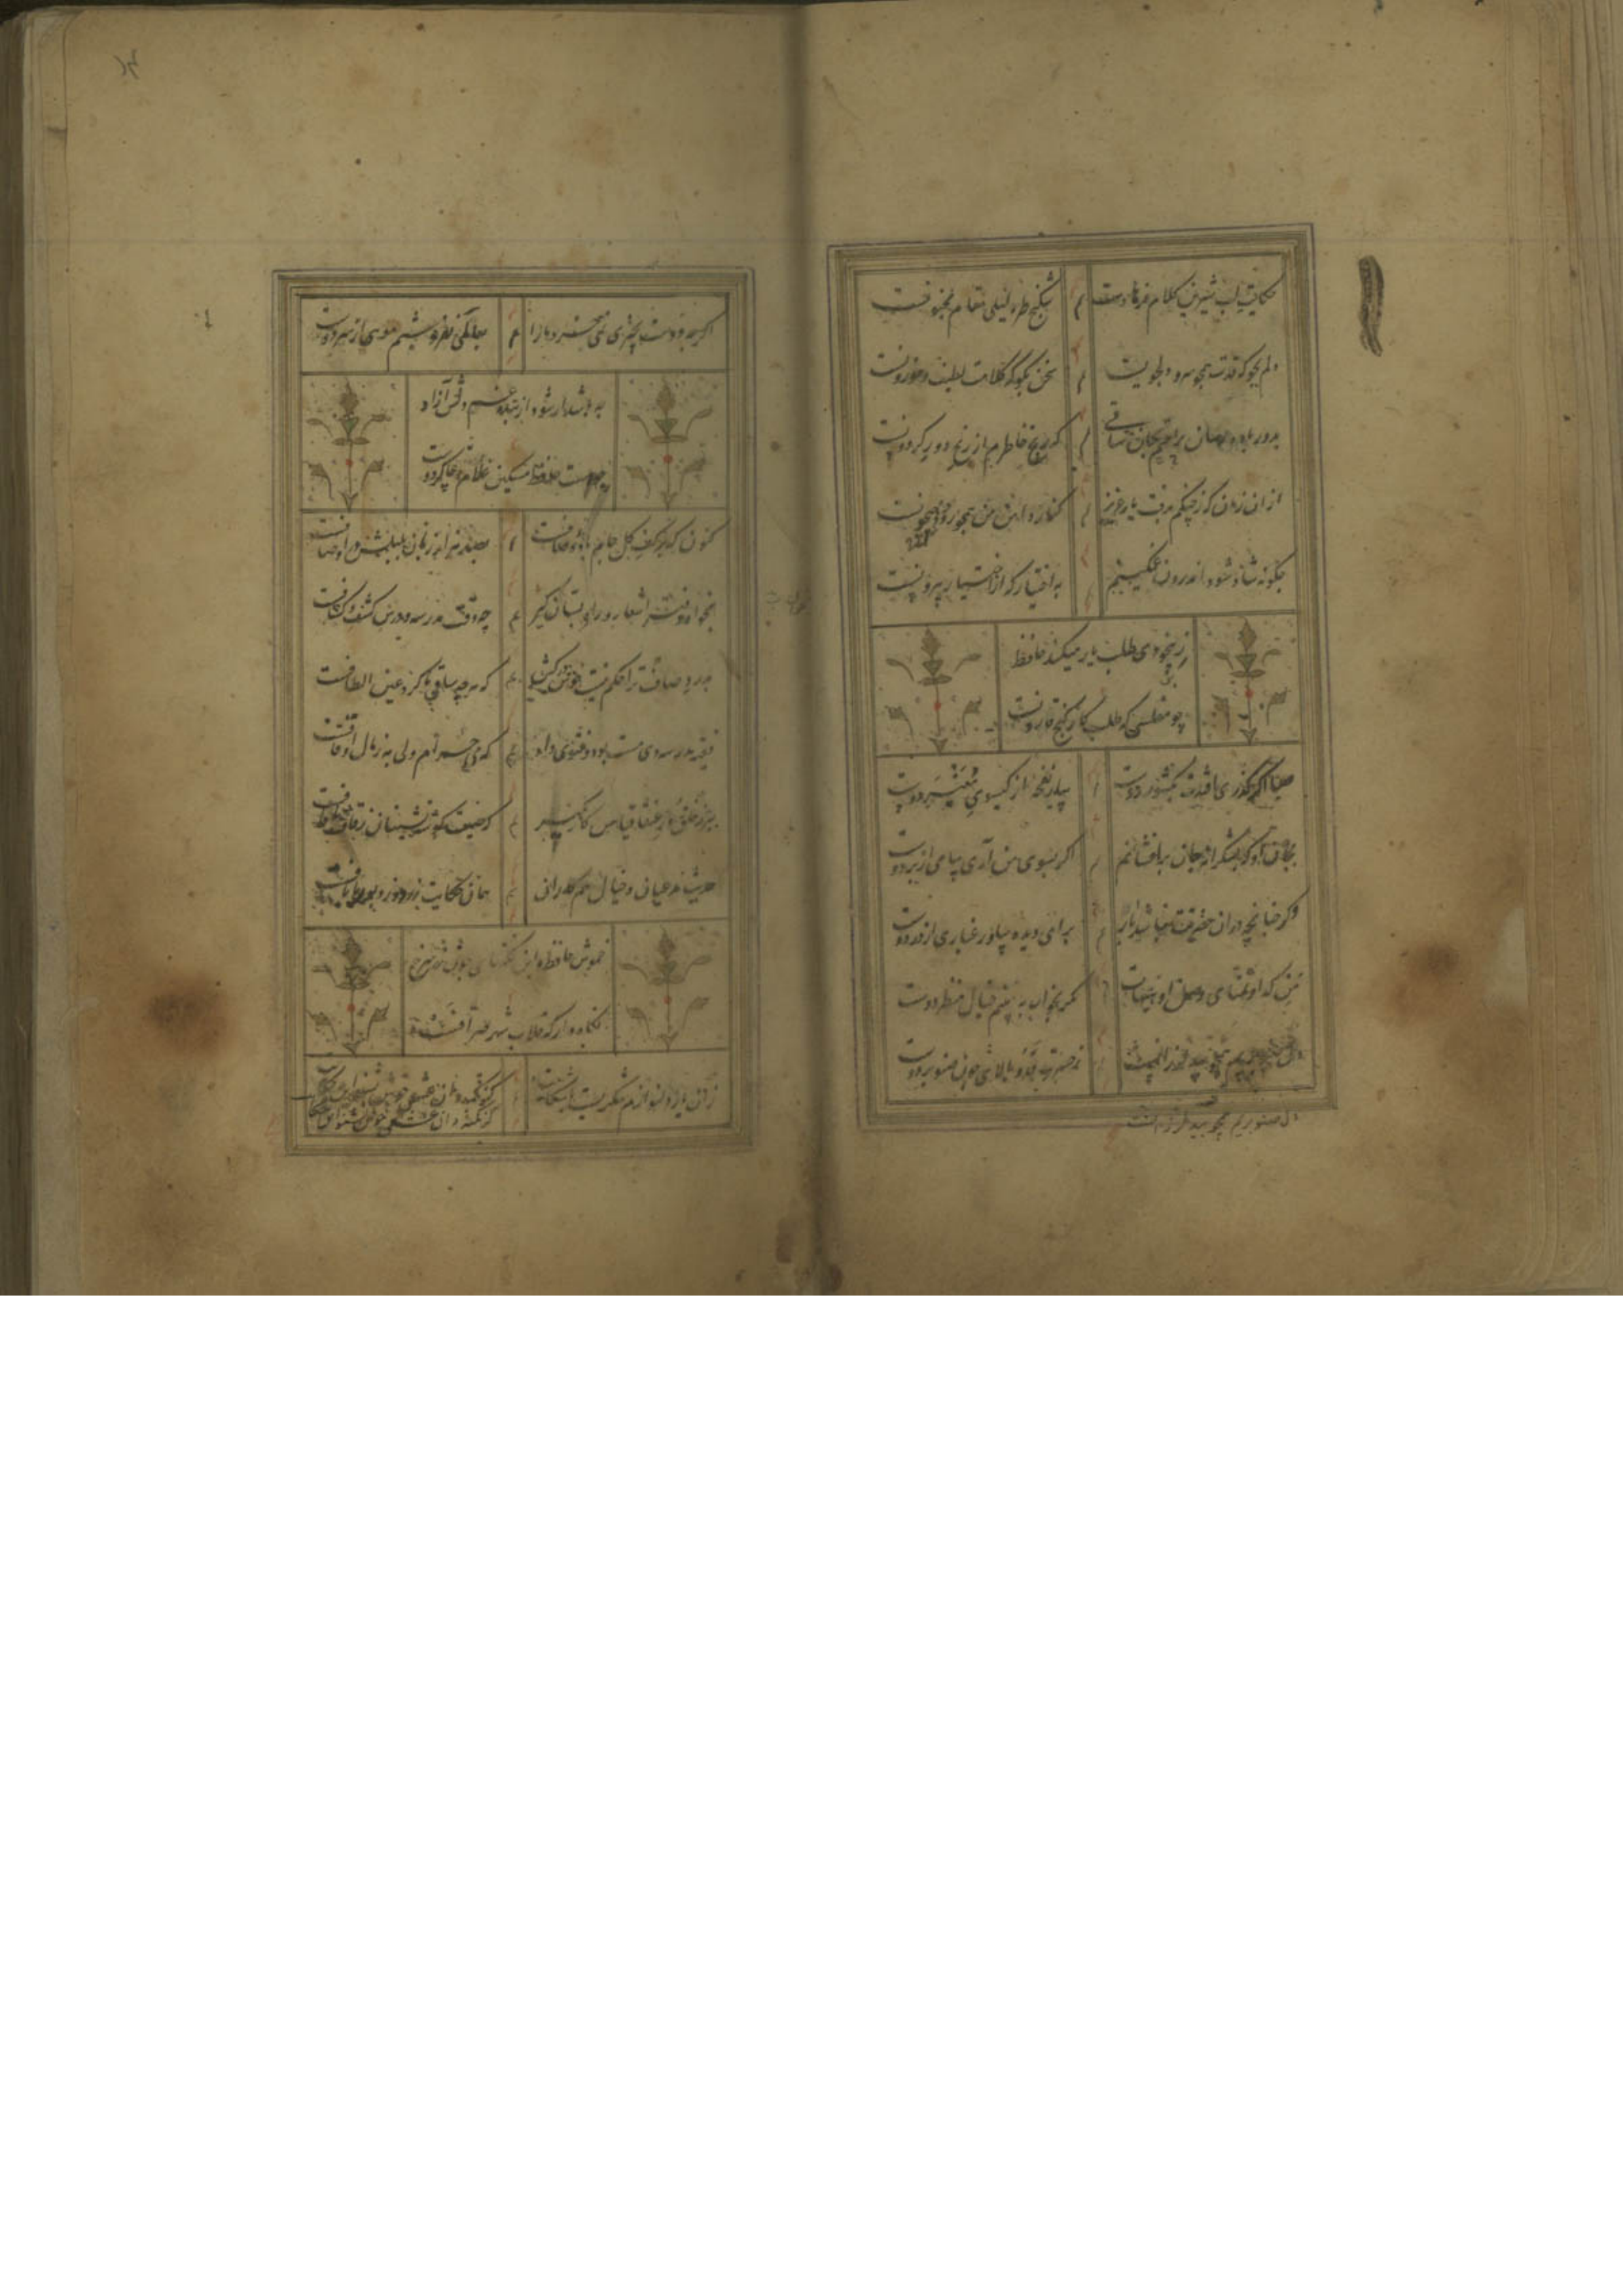 حکایت لب شیرین کلام فرهادست شکنج طره لیلی مقام مجنونست
دلم بجو که قدت همچو سرو دلجویست سخن بگو که کلامت لطیف و موزونست
ز دور باده بجان راحتی رسان ساقی که رنج خاطرم از رنج دور گردونست
از آن زمان که ز چنگم برفت یار عزیز کنار دامن من همچو رود جیحونست
چگونه شاد شود اندرون غمگینم به اختیار که از اختیار بیرونست
ز بیخودی طلب یار میکند حافظ
چو مفلسی که طلب کار گنج قارونست
صبا اگر گذری افتدت بکشور دوست بیار نفحه از گیسوی معنبر دوست
بجان او که بشکرانه جان برافشانم اگر بسوی من آری پیامی از بر دوست
وگر چنانچه در آن حضرتت نباشد بار برای دیده بیاور غباری از در دوست
من که او تمنای وصل او هیهات مگر بخواب به بینم خیال منظر دوست
دل صنوبریم همچو بید لرزانست ز حسرت قد و بالای چون صنوبر دوست
دل صنوبریم همچو بید لرزانست
اگرچه دوست بچیزی نمی‌خرد ما را بعالمی نفروشیم موی از سر دوست
چه باشد ار شود از بند غم دلش آزاد
چو هست حافظ مسکین غلام و چاکر دوست
کنون که در کف گل جام باده صافست بصد هزار زبان بلبلش در اوصافست
بخواه دفتر اشعار و راه بستان گیر چه وقت مدرسه و درس کشف کشافست
بدرد و صاف ترا حکم نیست خوش درکش که هرچه ساقی ما کرد عین الطافست
فقیه مدرسه دی مست بود و فتوی داد که می حرام ولی به ز مال اوقافست
ببر ز خلق و ز عنقا قیاس کار بگیر که صیت گوشه نشینان ز قاف تا قافست
حدیث مدعیان و خیال همکاران همان حکایت زردوز و بوریا بافست
خموش حافظ و این نکتهای چون زر سرخ
نگاه دار که قلاب شهر صرافست
زان یار دلنوازم شکریست با شکایت گر نکته دان عشقی خوش بشنو این حکایت